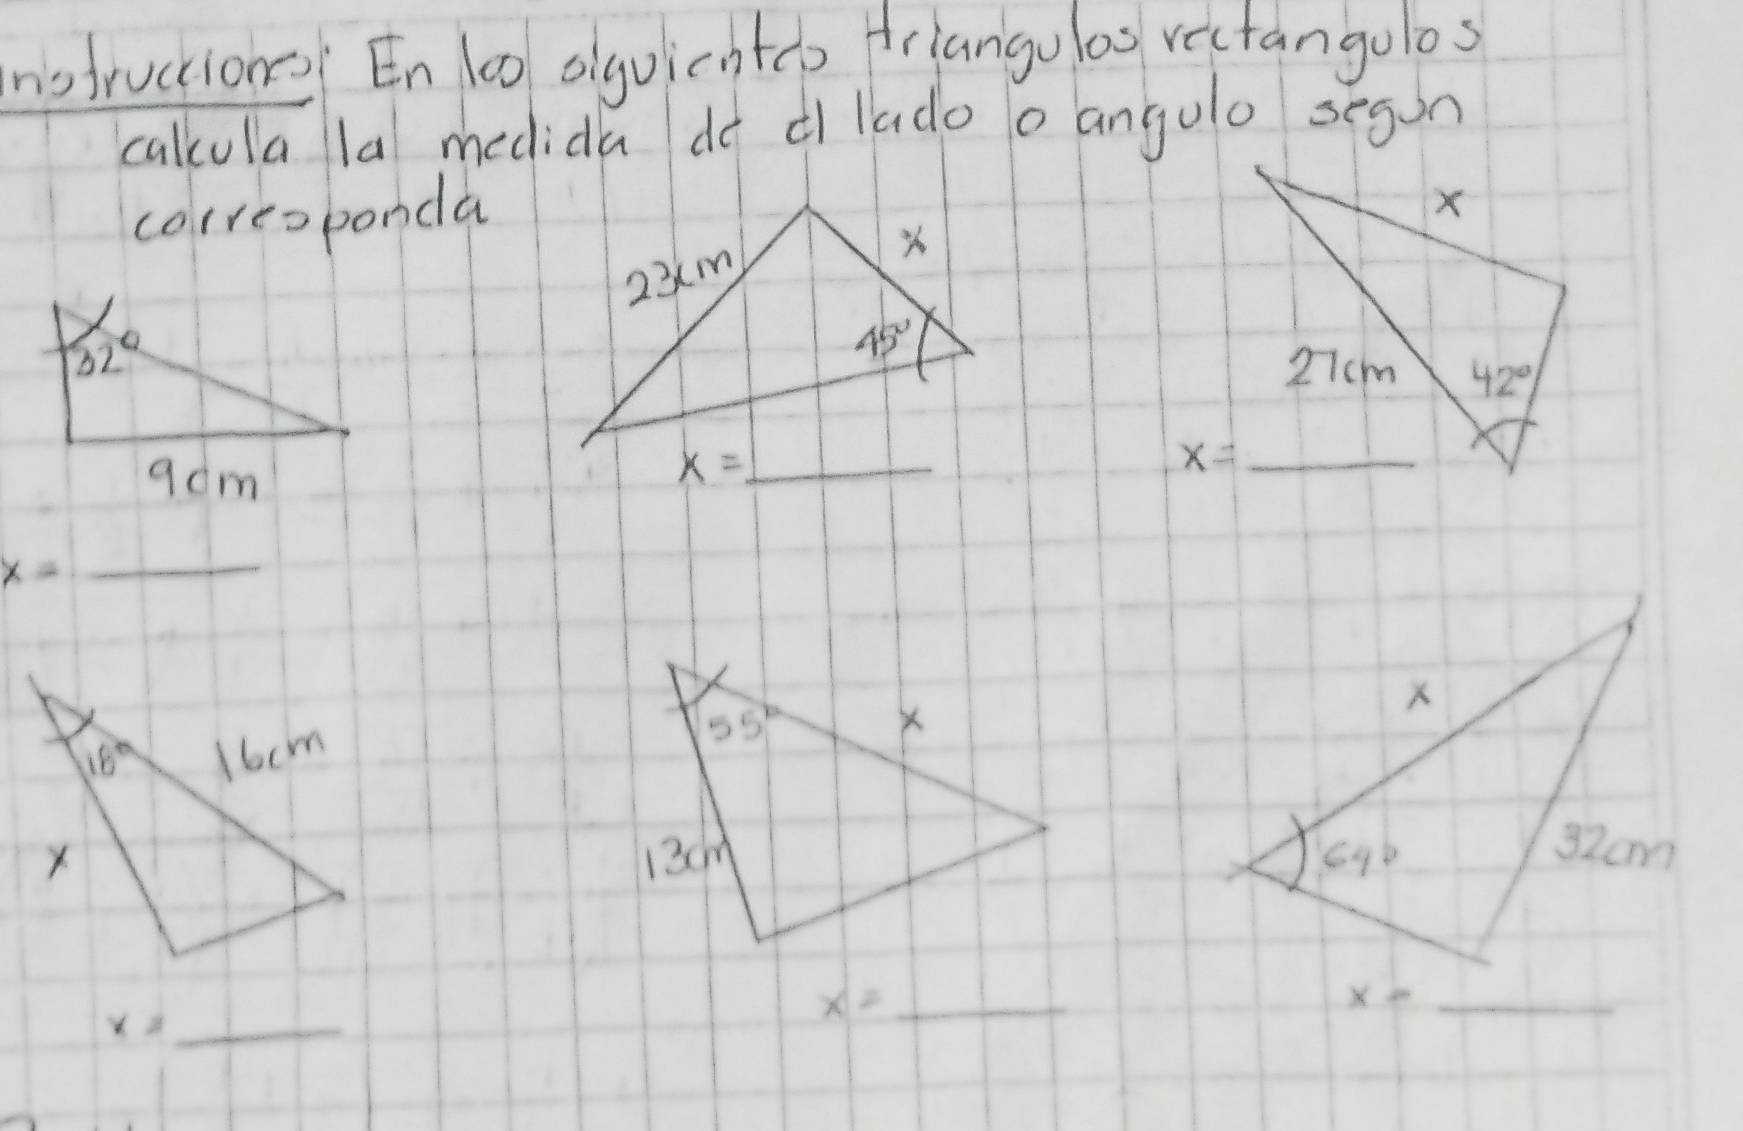 Instrucciones: En los siguientes triangulos rectangulos
calcula la medida de el lado o angulo segun
corresponda
32°
9cm
x =
23cm
x
45°
x =
x
27cm
42°
x =
18°
16cm
x
x =
55°
x
13cm
x =
x
32cm
x =